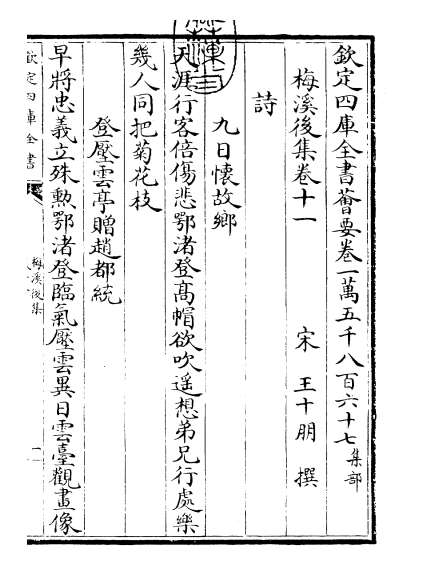 欽定四庫全書薈要卷一萬五千八百六十七 集部
梅溪後集卷十一 宋 王十朋 撰
詩
九日懷故鄉
天涯行客倍傷悲鄂渚登髙帽欲吹遥想弟兄行處樂
幾人同把菊花枝
登壓雲亭贈趙都統
早將忠義立殊勲鄂渚登臨氣壓雲異日雲臺觀畫像
欽定四庫全書
梅溪後集